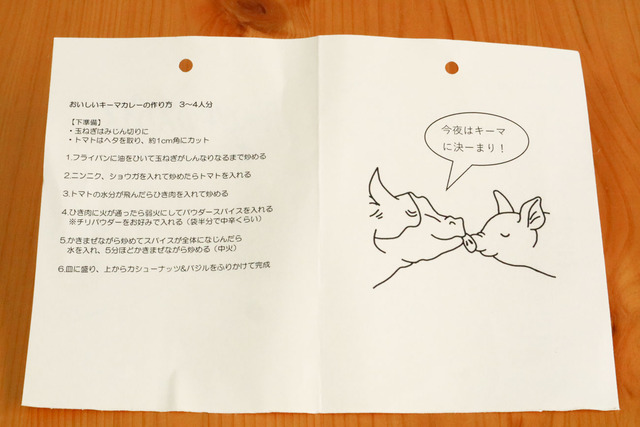 おいしいキーマカレーの作り方 3〜4人分
【下準備】
・玉ねぎはみじん切りに
・トマトはヘタを取り、約1cm角にカット
1.フライパンに油をひいて玉ねぎがしんなりなるまで炒める
2.ニンニク、ショウガを入れて炒めたらトマトを入れる
3.トマトの水分が飛んだらひき肉を入れて炒める
4.ひき肉に火が通ったら弱火にしてパウダースパイスを入れる
※チリパウダーをお好みで入れる（袋半分で中辛くらい）
5.かきまぜながら炒めてスパイスが全体になじんだら
水を入れ、5分ほどかきまぜながら炒める（中火）
6.皿に盛り、上からカシューナッツ&バジルをふりかけて完成
今夜はキーマ
に決一まり！